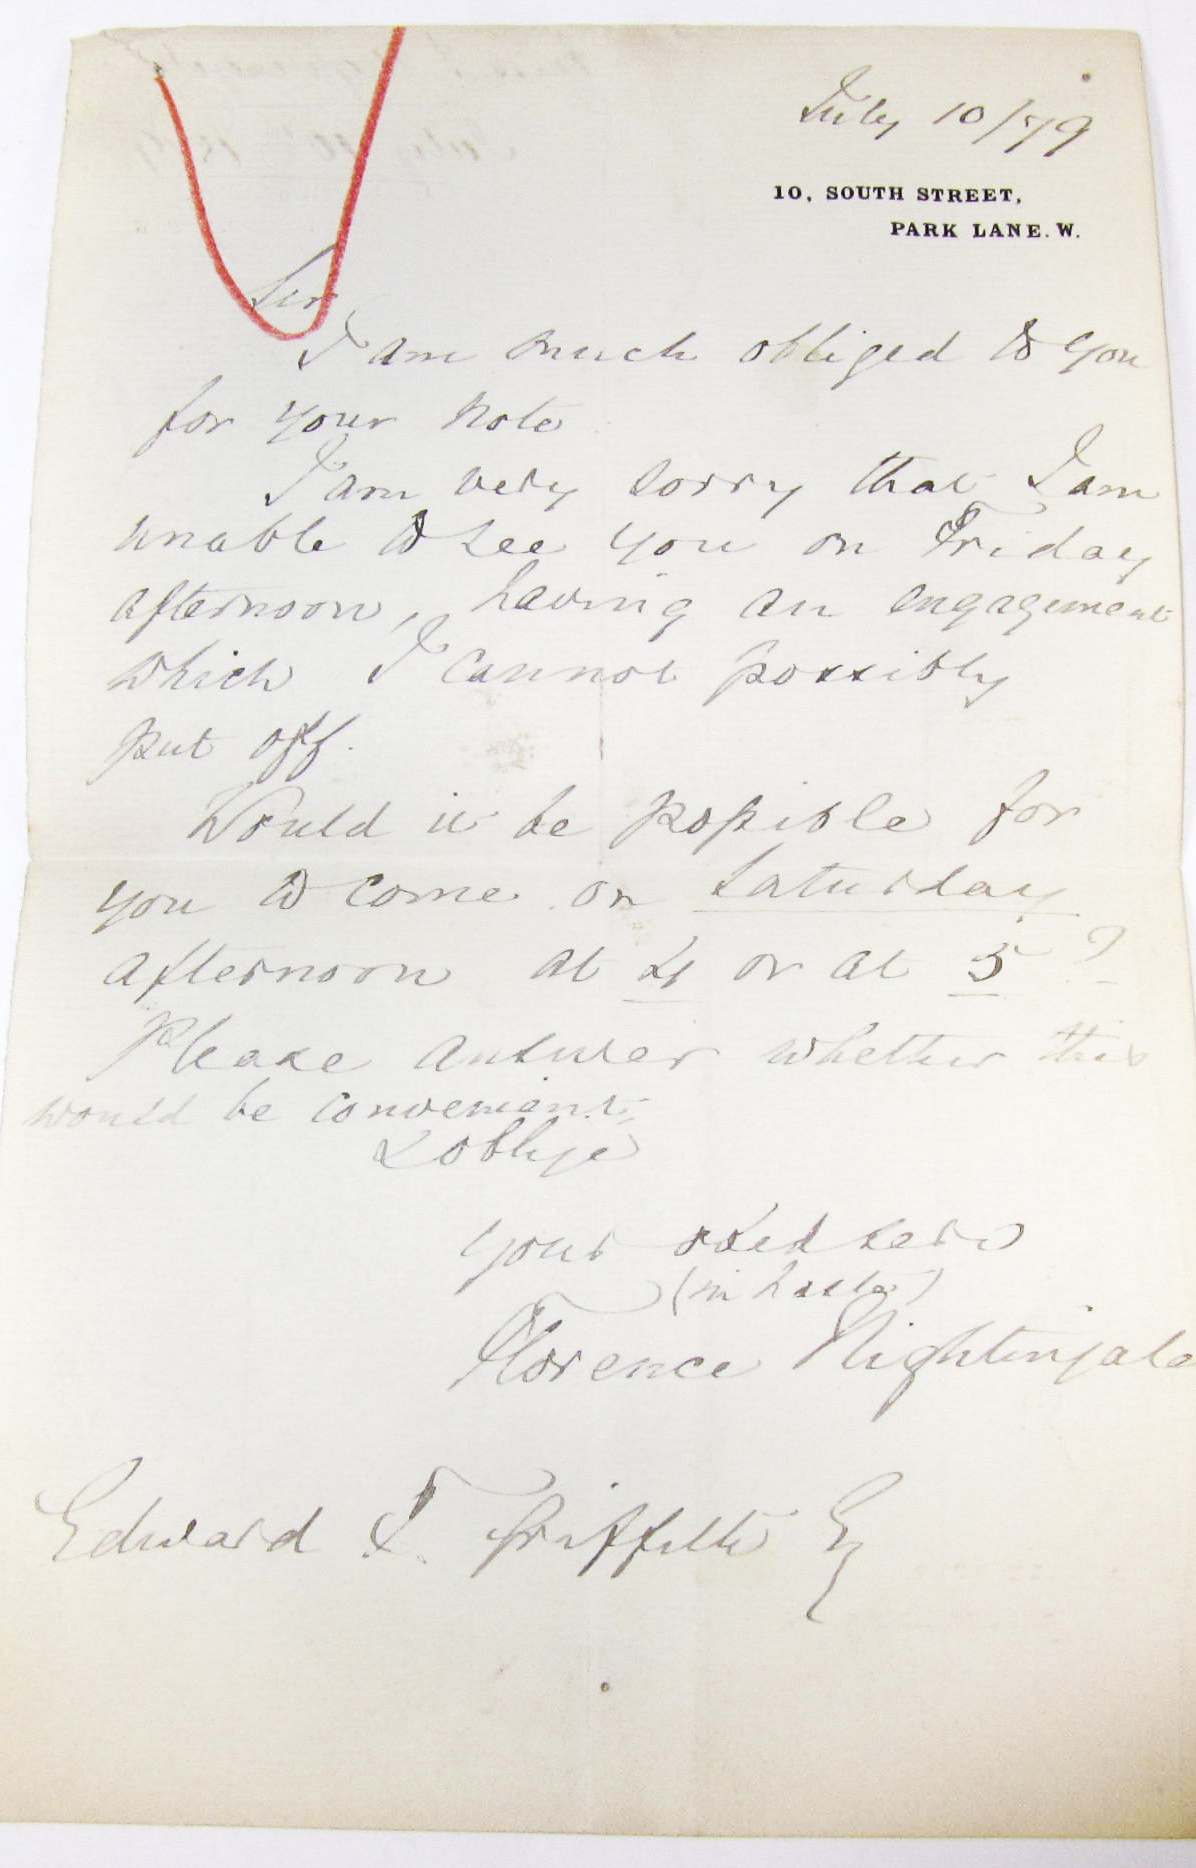 July 10/79
10, SOUTH STREET,
PARK LANE. W.
Sir
I am much obliged to you
for your note
I am very sorry that I am
unable to see you on Friday
afternoon, having an engagement
which I cannot possibly
put off.
Would it be possible for
you to come on Saturday
afternoon at 4 or at 5?
Please answer whether this
would be convenient
& oblige
your obed serv
(in haste)
Florence Nightingale
Edward Griffith Esq